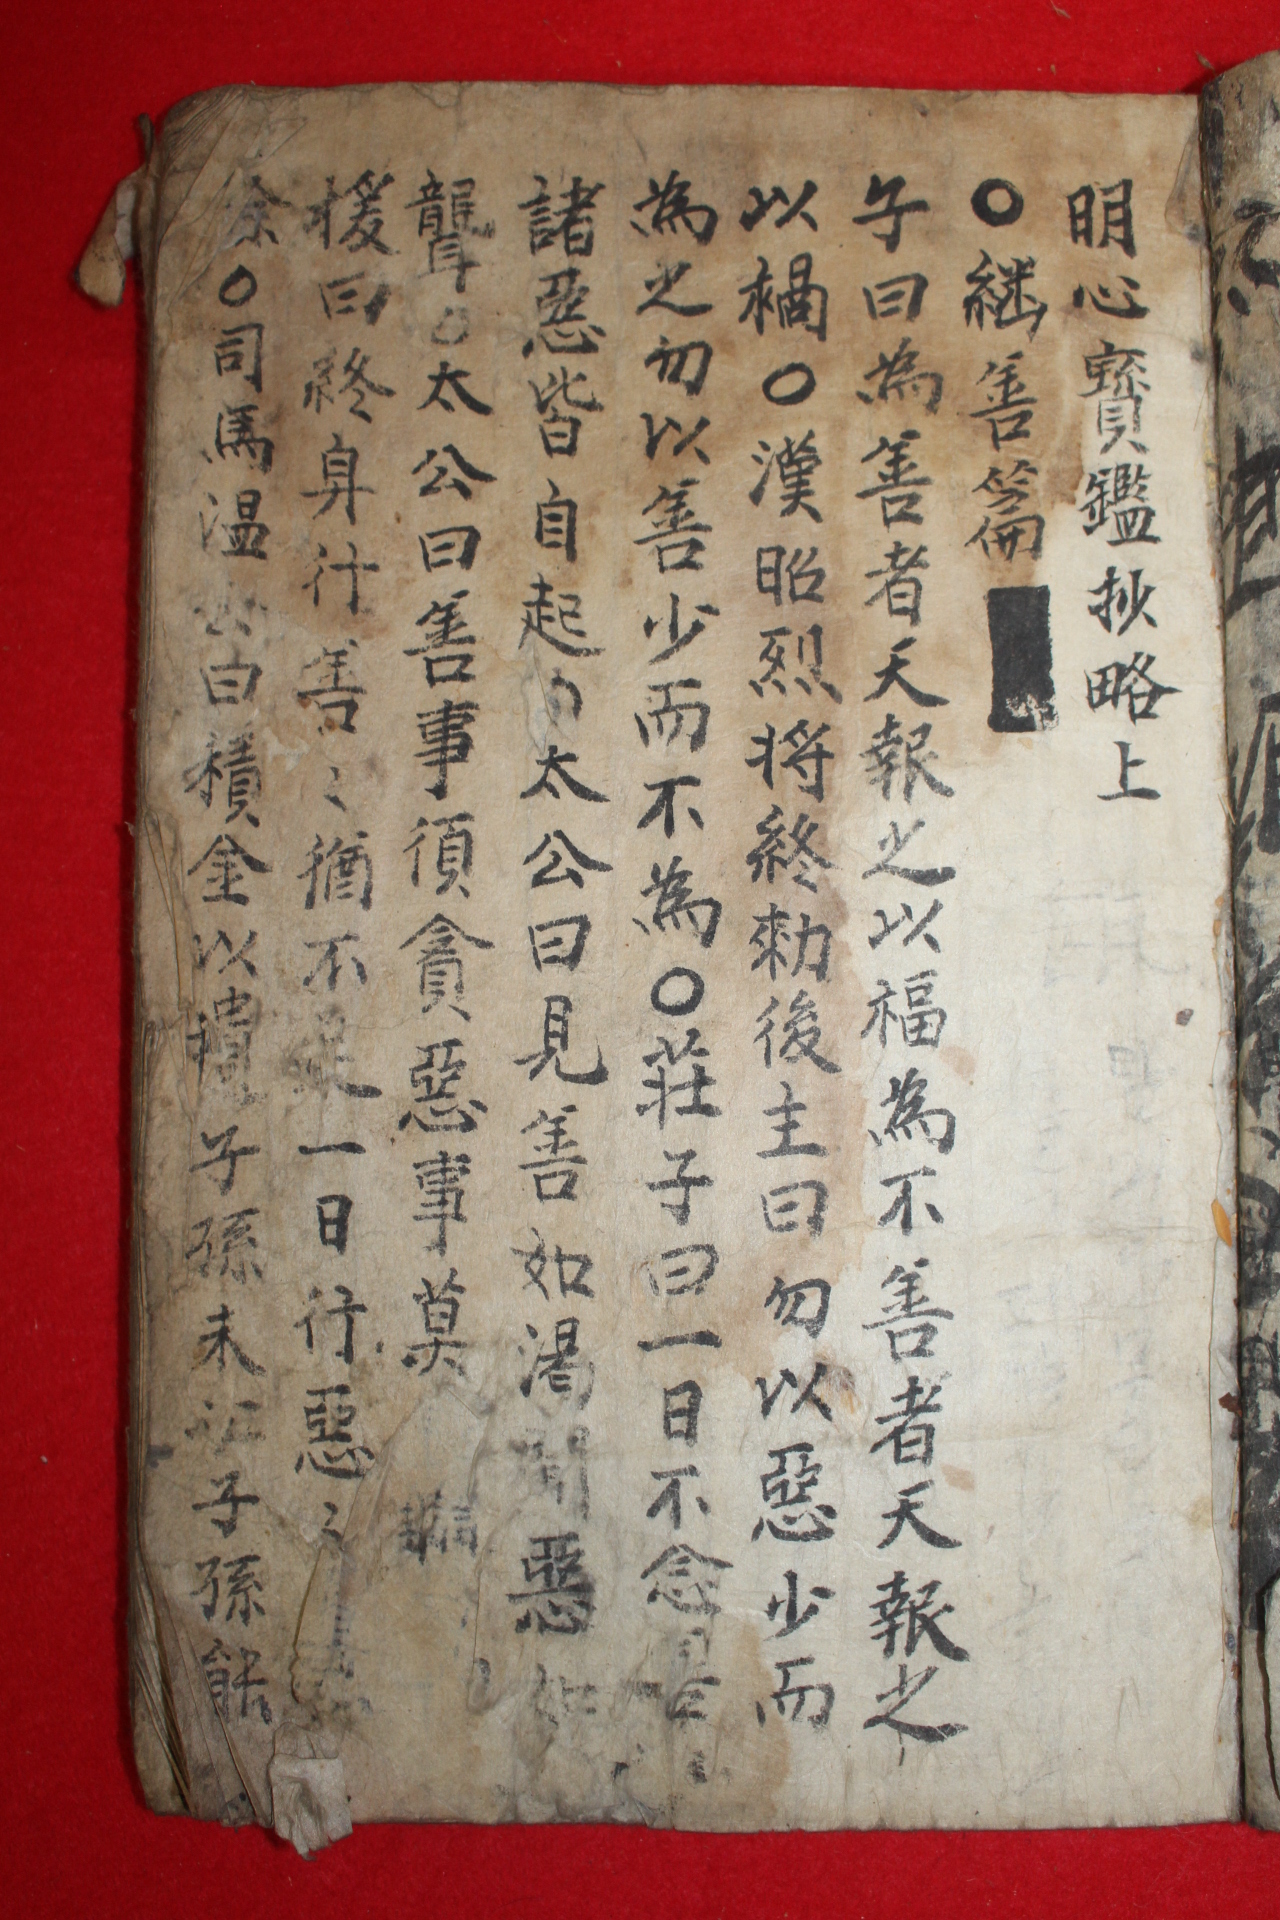 明心寶鑑抄略上
○継善篇
子曰為善者天報之以福為不善者天報之
以禍○漢昭烈将終勅後主曰勿以惡少而
為之勿以善少而不為○荘子曰一日不念善
諸惡皆自起○太公曰見善如渴聞惡如
聾○太公曰善事須貪惡事莫
援曰終身行善〻猶不足一日行惡〻
余○司馬温公曰積金以遺子孫未必子孫能